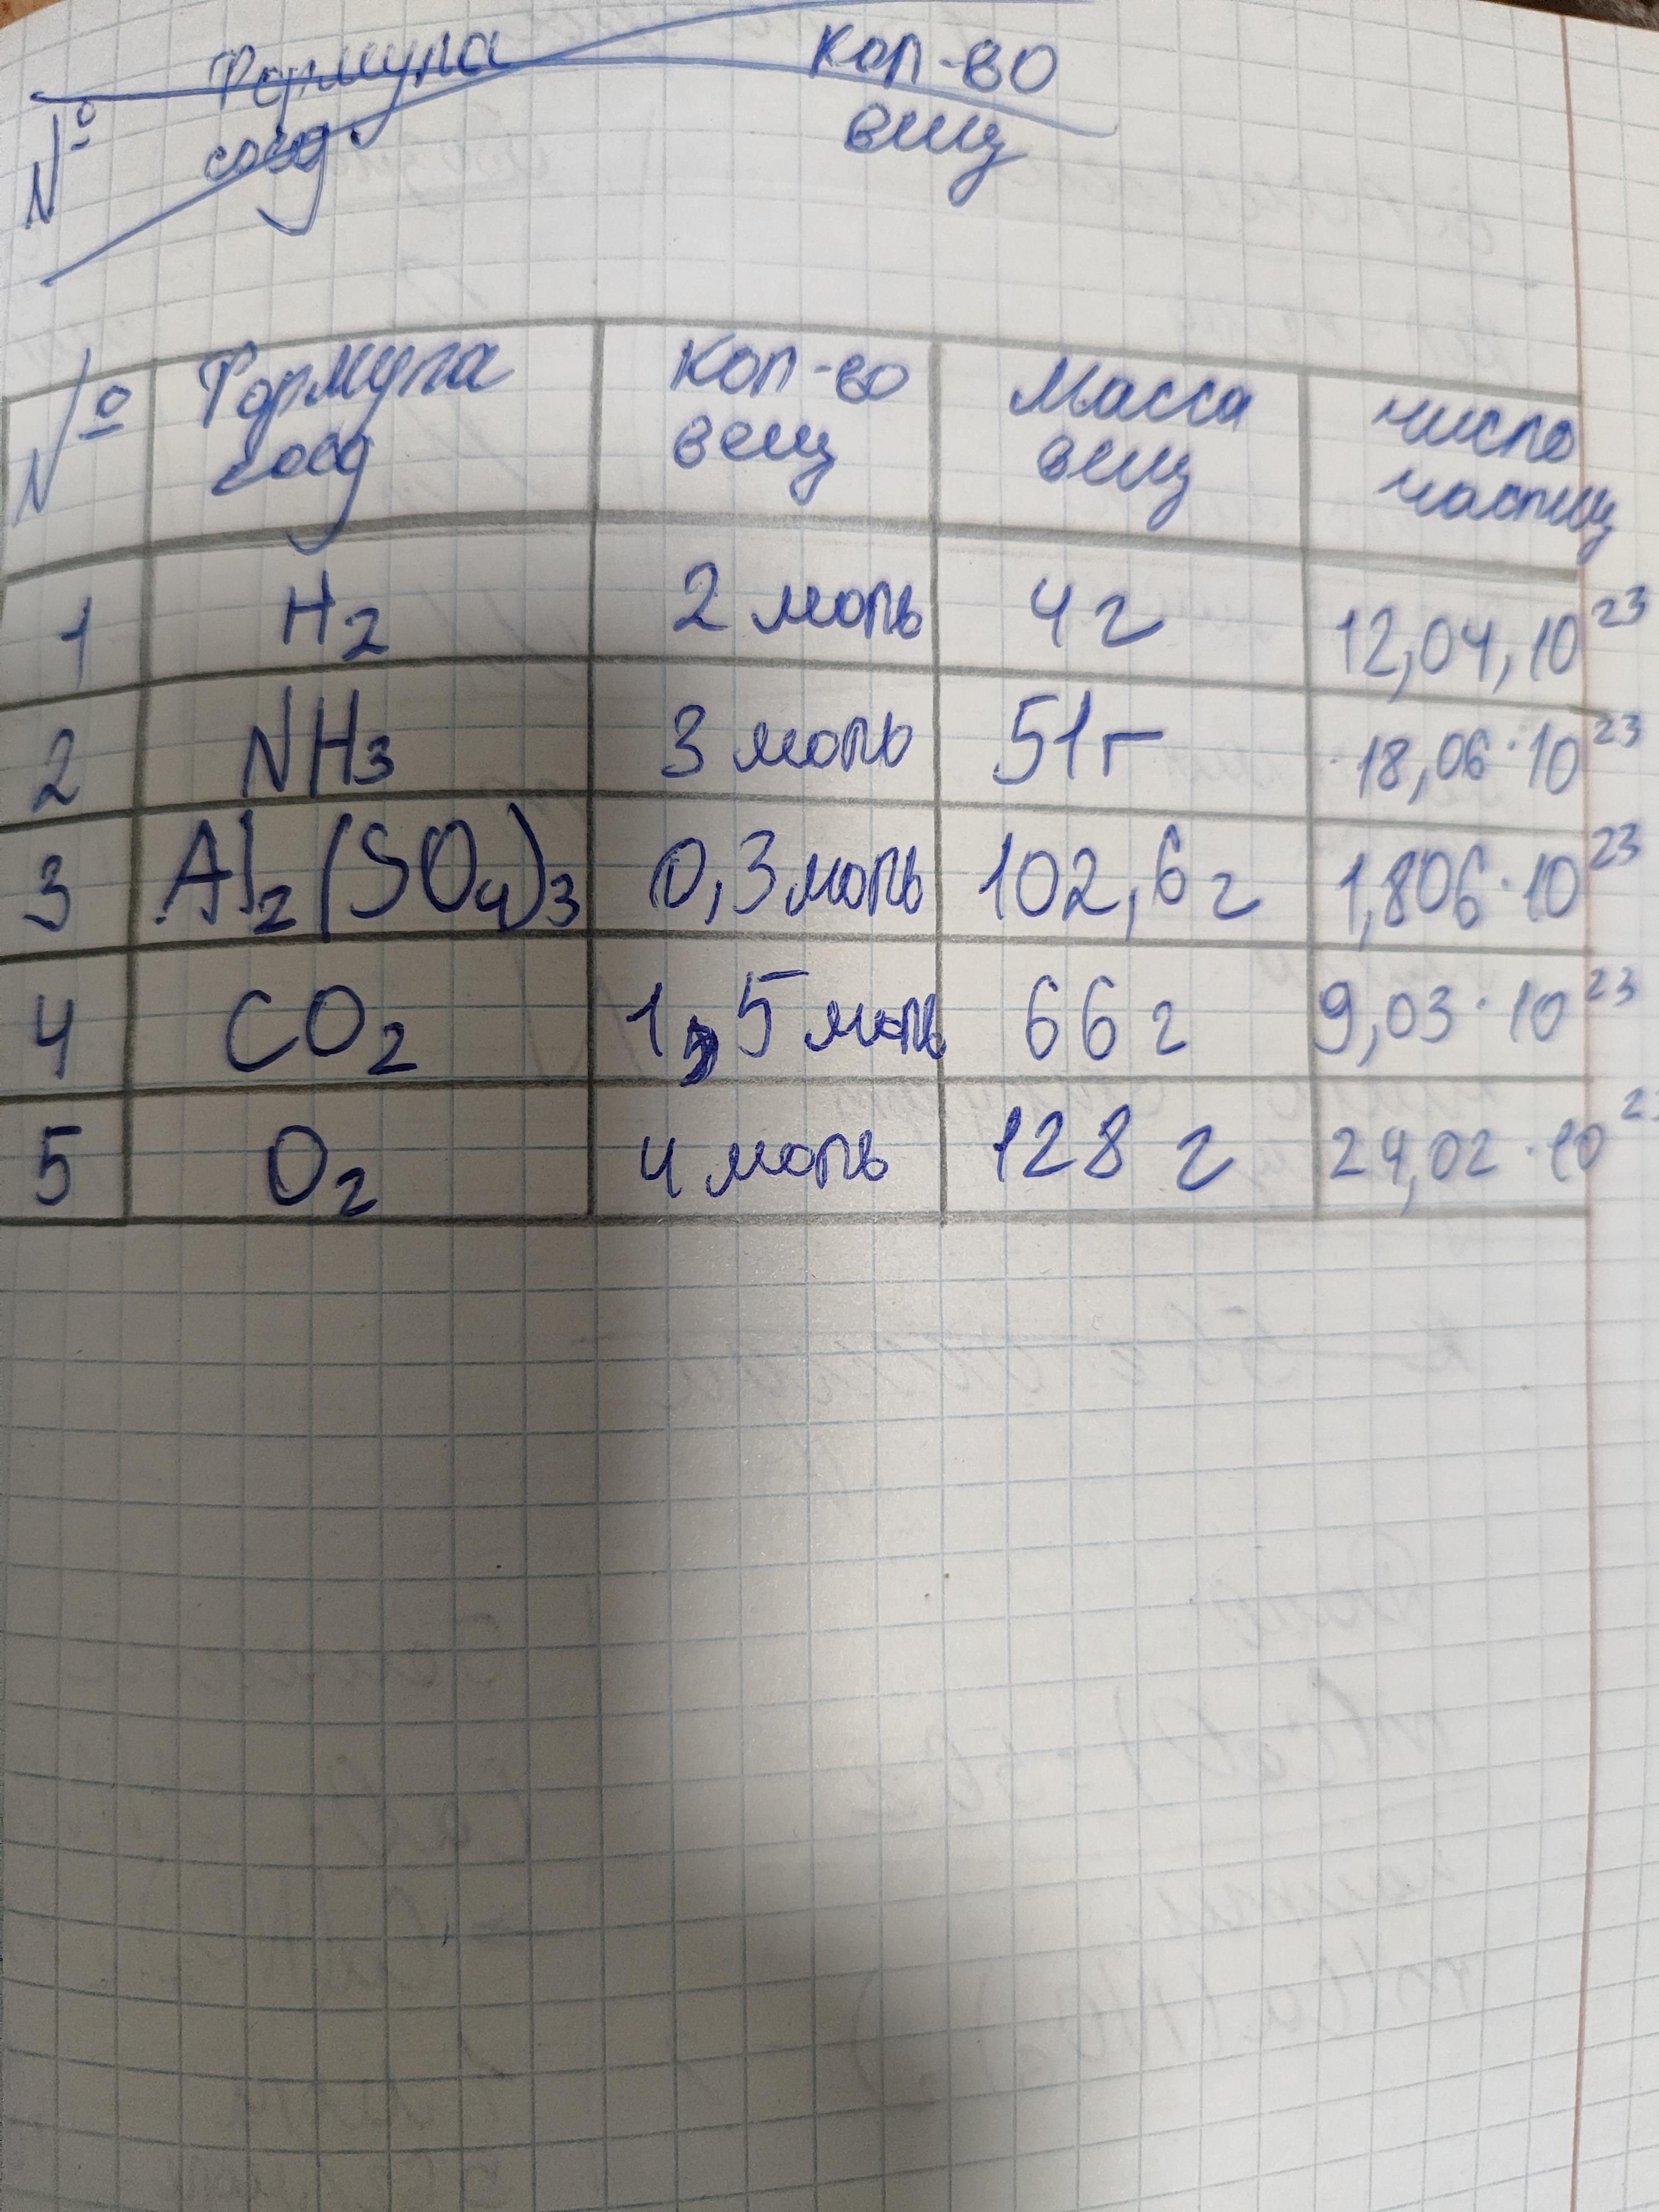 № Формула Кол-во
соед. вещ
№ Формула Кол-во Масса число
соед вещ вещ частиц
1 H₂ 2 моль 4 г 12,04,10²³
2 NH₃ 3 моль 51 г 18,06·10²³
3 Al₂(SO₄)₃ 0,3 моль 102,6 г 1,806·10²³
4 CO₂ 1,5 моль 66 г 9,03·10²³
5 O₂ 4 моль 128 г 24,02·10²³